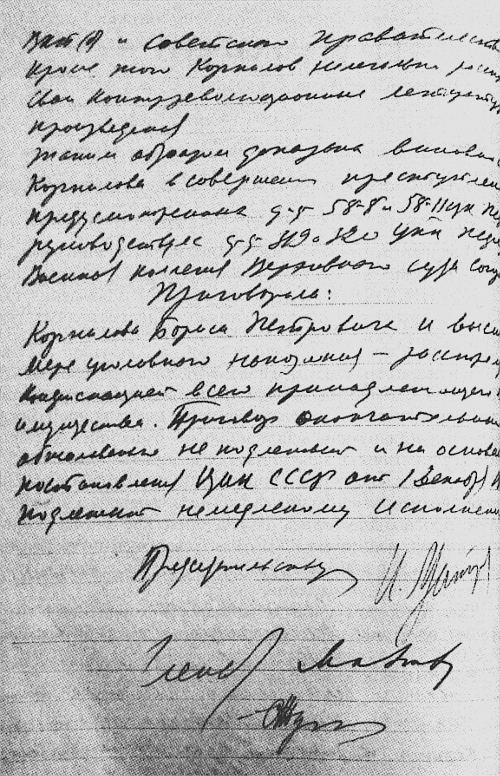 ВКП(б) и Советского правительств
кроме того Корнилов нелегально расп
свои контрреволюционные литератур
произведения
Таким образом доказана виновн
Корнилова в совершении преступлен
предусмотренных ст.ст. 58-8 и 58-11 УК
руководствуясь ст.ст. 319 и 320 УПК
Военная коллегия Верховного суда Союз
Приговорила:
Корнилова Бориса Петровича к высш
мере уголовного наказания – расстрел
конфискацией всего принадлежащего
имущества. Приговор окончательный
обжалованию не подлежит и на основа
постановления ЦИК СССР от 1 декабря
подлежит немедленному исполнени
Председательству
Члены